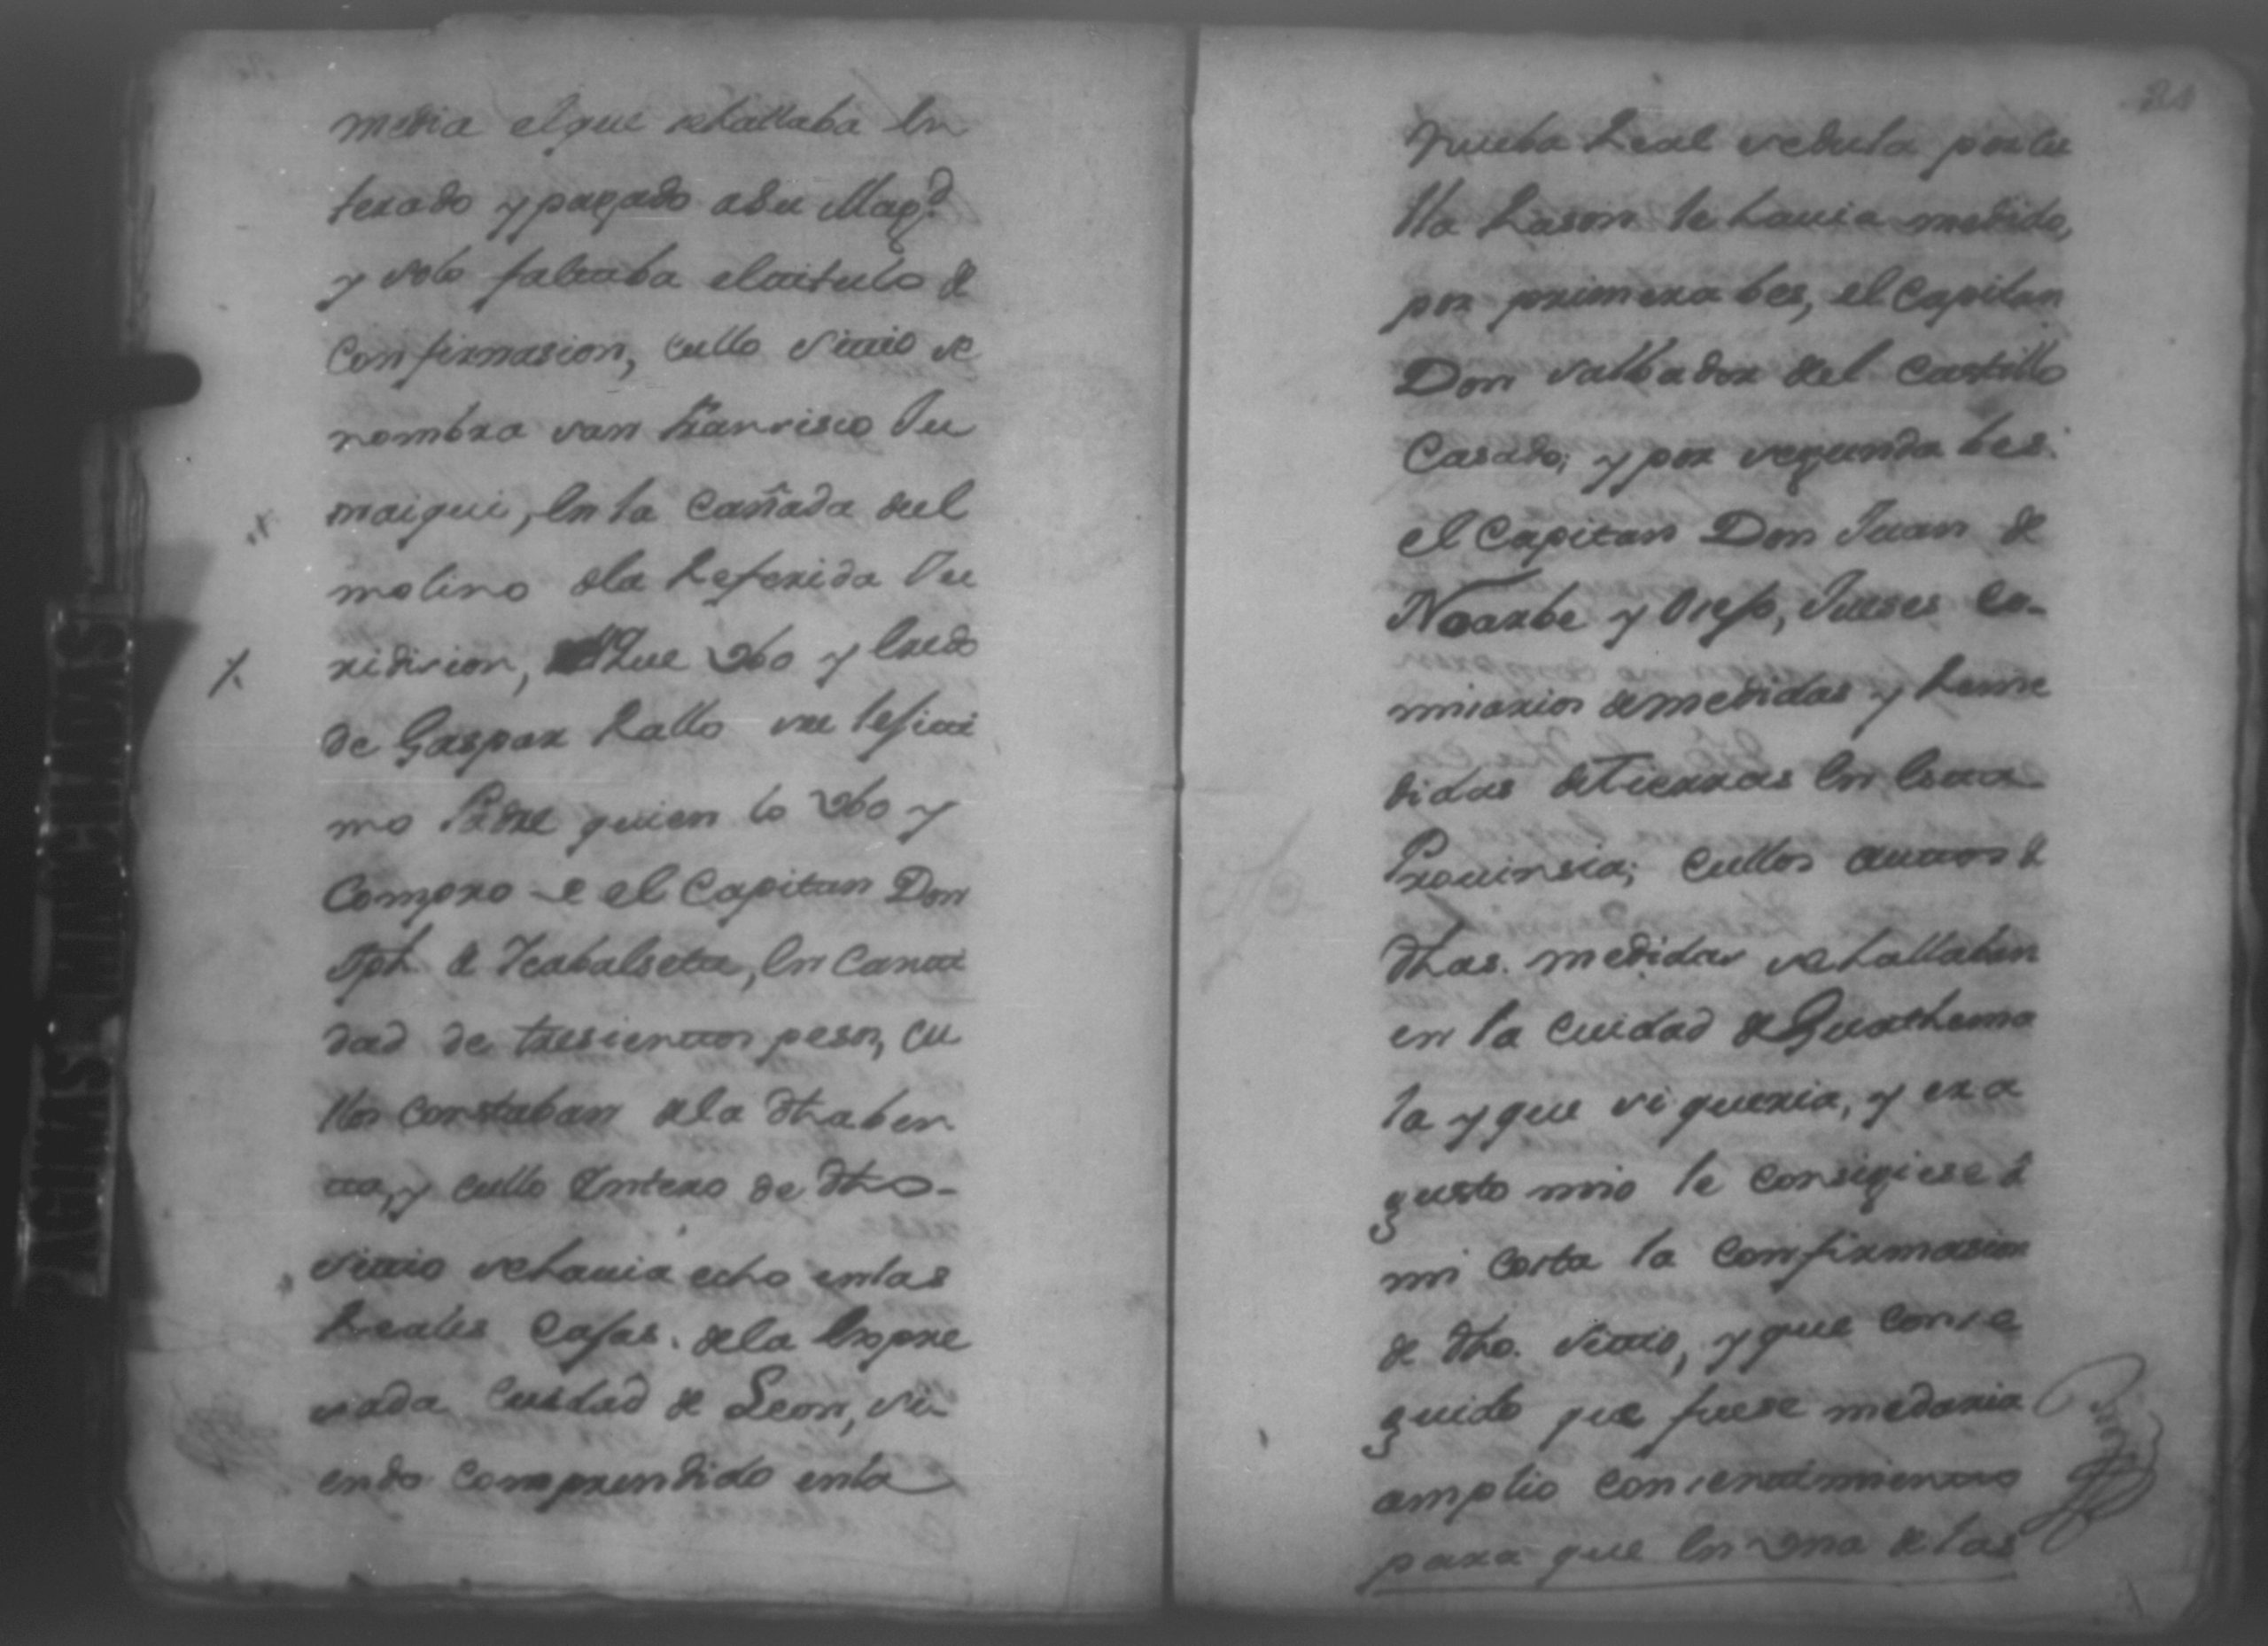 media el que sehallaba en
terado y pagado a su Magd.
y solo faltaba el titulo de
Confirmasion, cullo sittio se
nombra san Fransisco Cu
maiqui, en la Cañada del
molino de la Referida Ju
ridision, Que Vbo y Eredo
de Gaspar Rallo su lejiti
mo Padre quien lo Vbo y
Compro de el Capitan Don
Jph. de Zabalseta, en Canti
dad de tresientos pesos, cu
llos constaban de la dha ben
ta, y cullo Entero de dho
sittio sehauia echo en las
Reales Cajas. de la Expre
sada Ciudad de Leon, si
endo comprendido en la
nueba Real sedula por cu
lla Rason le hauia medido,
por primera bes, el Capitan
Don Salbador del Castillo
Casado; y por segunda bes
el Capitan Don Juan de
y Jueses Co
misarios de medidas y Reme
didas de Tierras en Esta
Prouinsia; cullos autos de
dhas. medidas sehallaban
en la Ciudad de Guathema
la y que si queria, y era
gusto mio le consigiese a
mi costa la confirmasion
de dho. sittio, y que conse
guido que fuese me daria
amplio consentimiento
para que en Vna de las